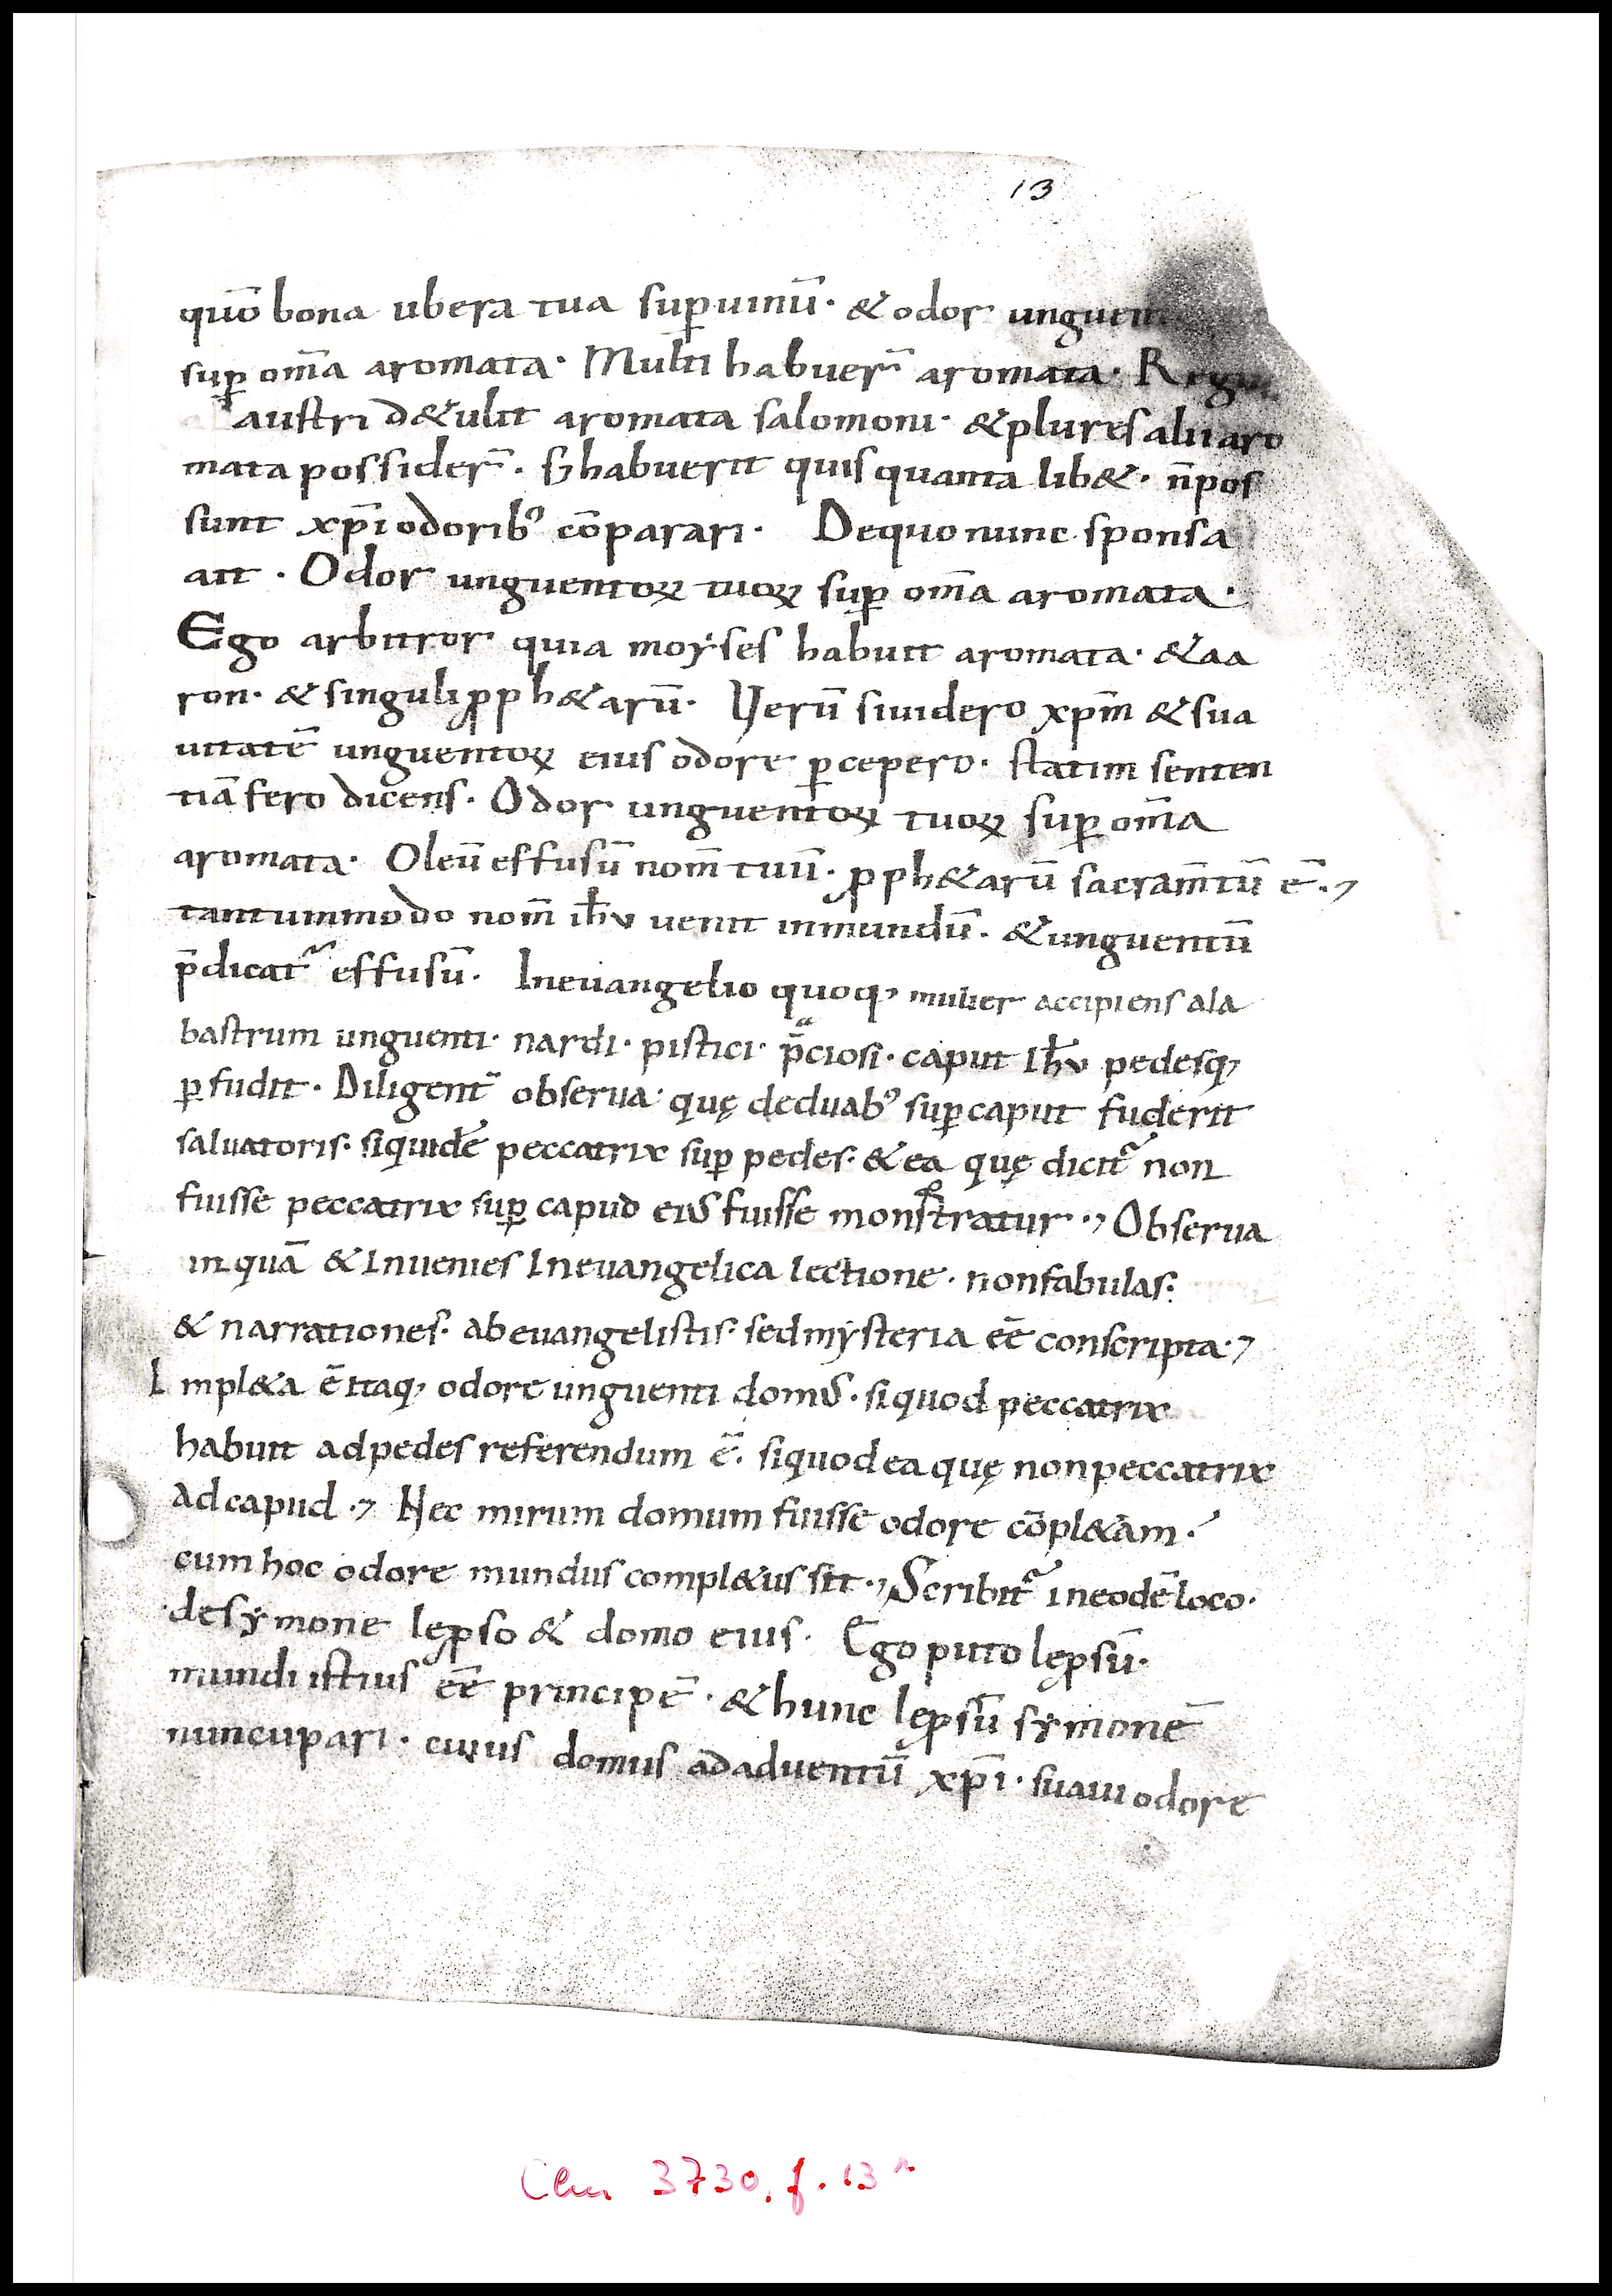 13
quō bona ubera tua suꝑ uinū· & odor unguen
suꝑ om̄a aromata· Multi habuer̄ aromata· Regi
austri d&ulit aromata salomoni· & plures alii aro
mata possider̄· Si habuerit quis quanta lib&· n̄ pos
sunt xp̄i odoribꝰ cōparari· De quo nunc sponsa
ait· Odor unguentoꝝ tuoꝝ suꝑ om̄a aromata·
Ego arbitror quia moẏses habuit aromata· & aa
ron· & singuli ꝓph&arū· Uerū si uidero xp̄m & sua
uitatē unguentoꝝ eius odore ꝑcepero· statim senten
tiā fero dicens· Odor unguentoꝝ tuoꝝ suꝑ om̄a
aromata· Oleū effusū nom̄ tuū· ꝓph&arū sacram̄tū ē·,
tantummodo nom̄ ih̄u uenit in mundū· & unguentū
p̄dicat᷑ effusū· In euangelio quoq, mulier accipiens ala
bastrum unguenti· nardi· pistici· p̄ciosi· caput ih̄u pedesq,
ꝑfudit· Diligent̄ obserua· quę de duabꝰ suꝑ caput fuderit
saluatoris· siquidē peccatrix suꝑ pedes· & ea quę dicit᷑ non
fuisse peccatrix suꝑ capud eiꝰ fuisse monstratur·, Obserua
inquā & inuenies In euangelica lectione· non fabulas·
& narrationes· ab euangelistis· sed mẏsteria eē conscripta·,
Impl&a ē itaq, odore unguenti domꝰ· si quod peccatrix
habuit ad pedes referendum ē· si quod ea quę non peccatrix
ad capud·, Nec mirum domum fuisse odore cōpl&am·
cum hoc odore mundus compl&us sit·, Scribit᷑ in eodē loco·
de sẏmone lepso & domo eius· Ego puto lepsū·
mundi istius eē principē· & hunc lepsū sẏmonē
nuncupari· cuius domus ad aduentū xp̄i· suaui odore
Clm 3730, f. 13r